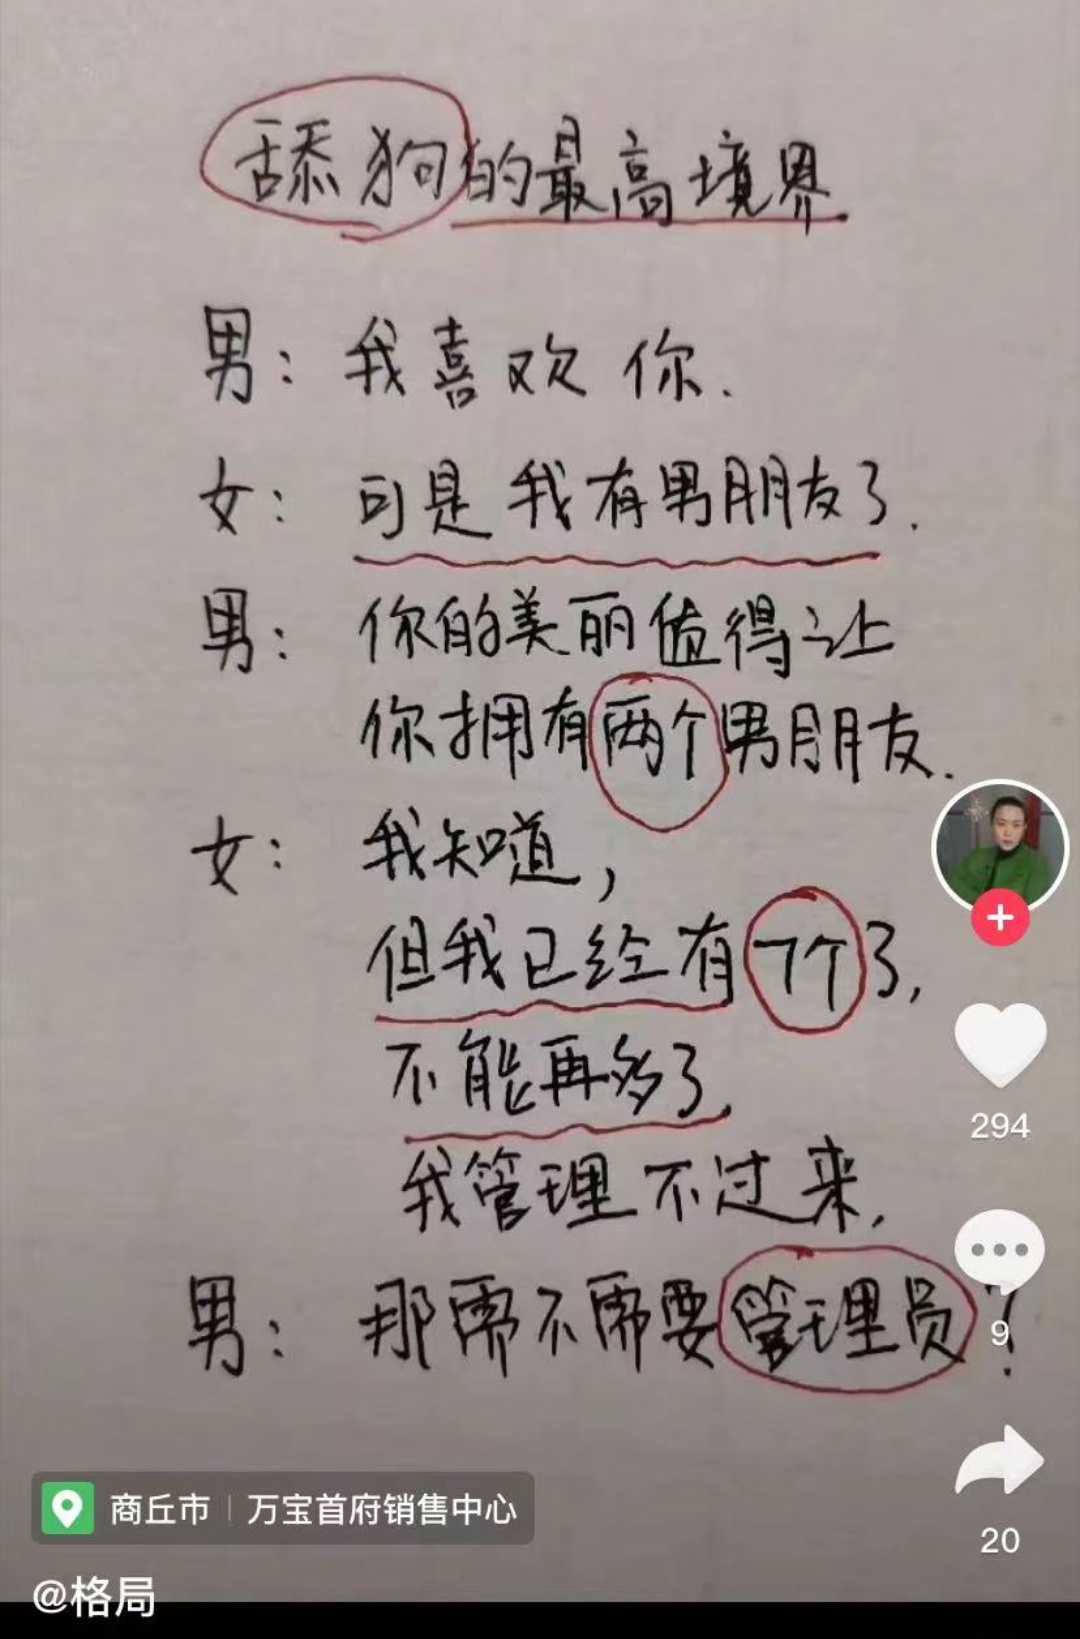 舔狗的最高境界
男：我喜欢你.
女：可是我有男朋友了.
男：你的美丽值得让
你拥有两个男朋友.
女：我知道，
但我已经有7个了，
不能再多了，
我管理不过来，
男：那需不需要管理员？
294
9
20
商丘市｜万宝首府销售中心
@格局